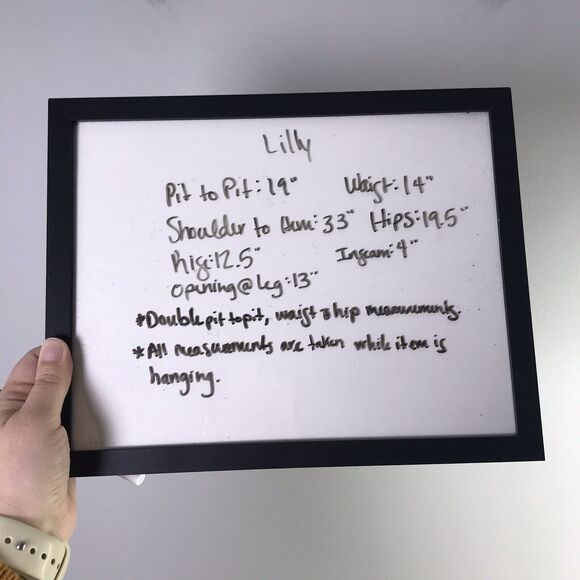 Lilly
Pit to Pit: 19" Waist: 14"
Shoulder to Hem: 33" Hips: 19.5"
Rise: 12.5" Inseam: 4"
opening @ leg: 13"
*Double pit to pit, waist & hip measurements.
*All measurements are taken while item is
hanging.